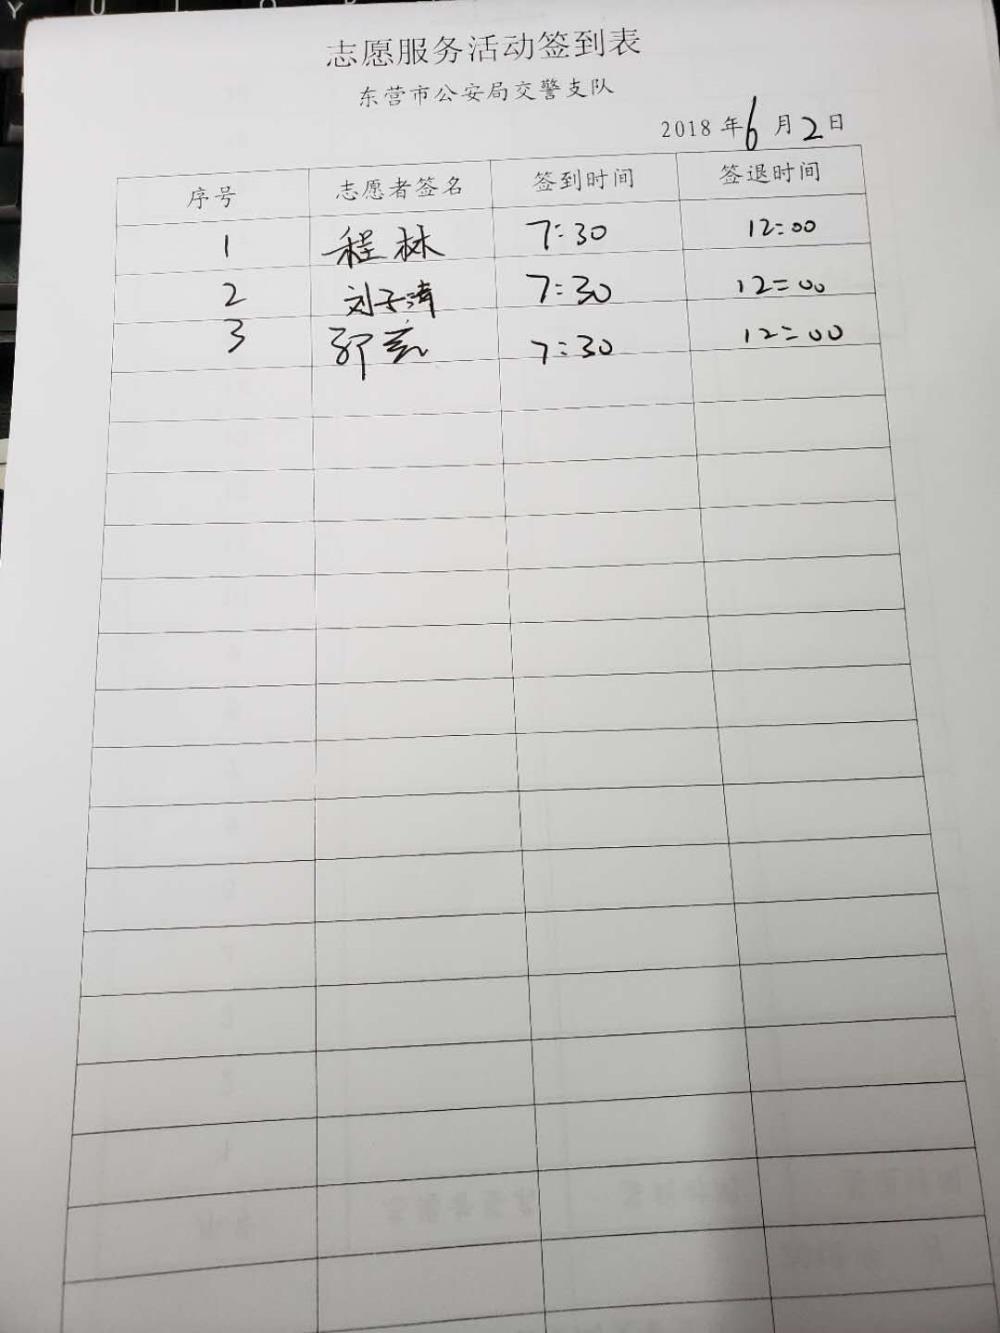 志愿服务活动签到表
东营市公安局交警支队
2018 年 6 月 2 日
序号 志愿者签名 签到时间 签退时间
1 程林 7:30 12:00
2 刘子涛 7:30 12:00
3 7:30 12:00